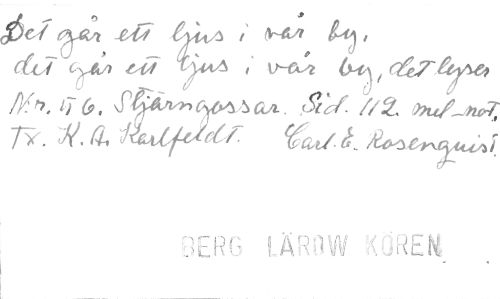 Det går ett ljus i vår by.
det går ett ljus i vår by, det lyser
Nr. 56. Stjärngossar. Sid. 112. mel-not.
Tx. K. A. Karlfeldt. Carl. E. Rosenquist.
BERG LÄROW KÖREN